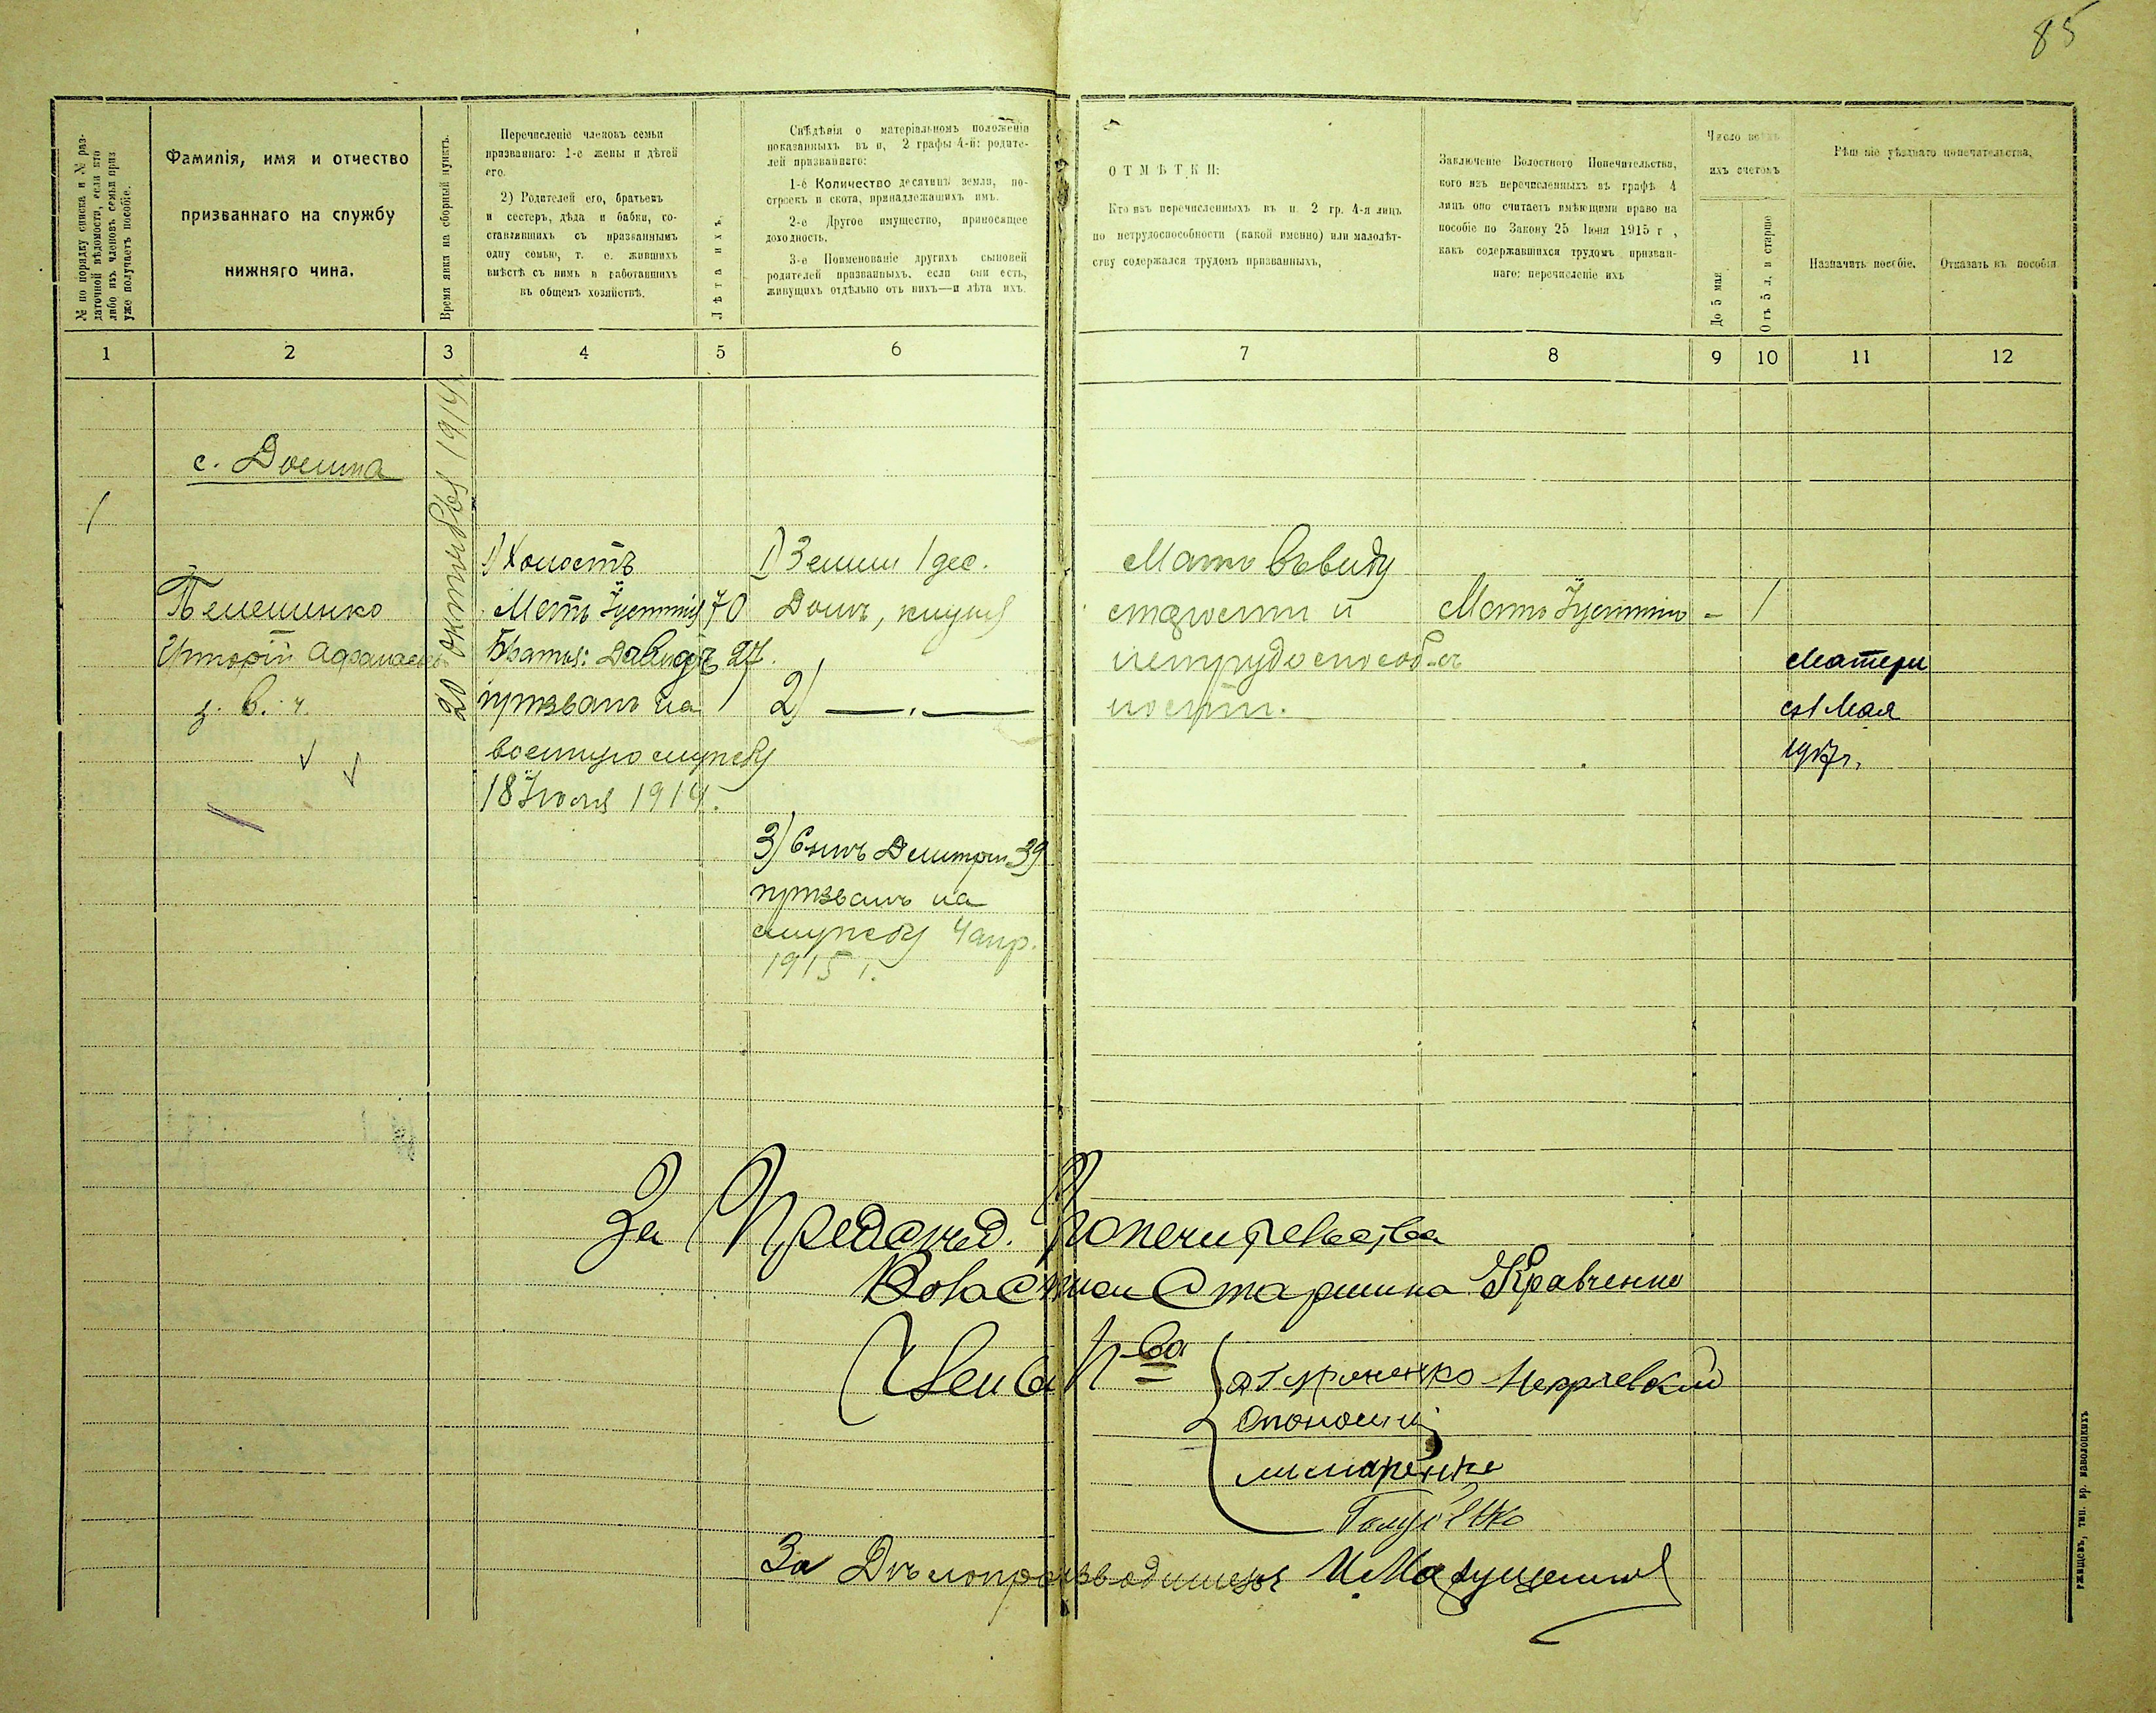 85
№ по порядку списка и № раз-
даточной вѣдомости, если кто
либо изъ членовъ семьи приз
уже получаетъ пособіе.
Фамилія, имя и отчество
призваннаго на службу
нижняго чина.
Время явки на сборный пунктъ.
Перечисленіе членовъ семьи
призваннаго: 1-е жены и дѣтей
его.
2) Родителей его, братьевъ
и сестеръ, дѣда и бабки, со-
ставлявшихъ съ призваннымъ
одну семью, т. е. жившихъ
вмѣстѣ съ нимъ и работавшихъ
въ общемъ хозяйствѣ.
Лѣта ихъ
Свѣдѣнія о матеріальномъ положеніи
показанныхъ въ п, 2 графы 4-й: родите-
лей призваннаго:
1-е Количество десятинъ земли, по-
строекъ и скота, принадлежащихъ имъ.
2-е Другое имущество, приносящее
доходность.
3-е Поименованіе другихъ сыновей
родителей призванныхъ, если они есть,
живущихъ отдѣльно отъ нихъ—и лѣта ихъ.
ОТМѢТКИ:
Кто изъ перечисленныхъ въ п. 2 гр. 4-я лицъ
по нетрудоспособности (какой именно) или малолѣт-
ству содержался трудомъ призванныхъ,
Заключеніе Волостного Попечительства,
кого изъ перечисленныхъ въ графѣ 4
лицъ оно считаетъ имѣющими право на
пособіе по Закону 25 Іюня 1915 г ,
какъ содержавшихся трудомъ призван-
наго: перечисленіе ихъ
Число всѣхъ
ихъ счетомъ
До 5 мая
Отъ 5 л. и старше
Рѣш ніе уѣзднаго попечительства,
Назначить пособіе.
Отказать въ пособіи
1 2 3 4 5 6 7 8 9 10 11 12
20 октября 1914
1
1) Холостъ
Мать Іустинія 70
Братья: Давидъ 27.
призванъ на
военную службу
18 Іюля 1914.
1) Земли 1 дес.
Домъ,
2) — . —
3) Сынъ Дмитрій 39
призванъ на
службу 4 апр.
1915 г.
Мать ввиду
старости и
нетрудоспособ-
ности.
Мать Іустинію - 1
Матери
съ 1 Мая
1917 г.
За Предсѣд. Попечительства
Волостной Старшина Кравченко
Члены П-ва
За Дѣлопроизводителя
ржищевъ, тип. бр. наволоцкихъ